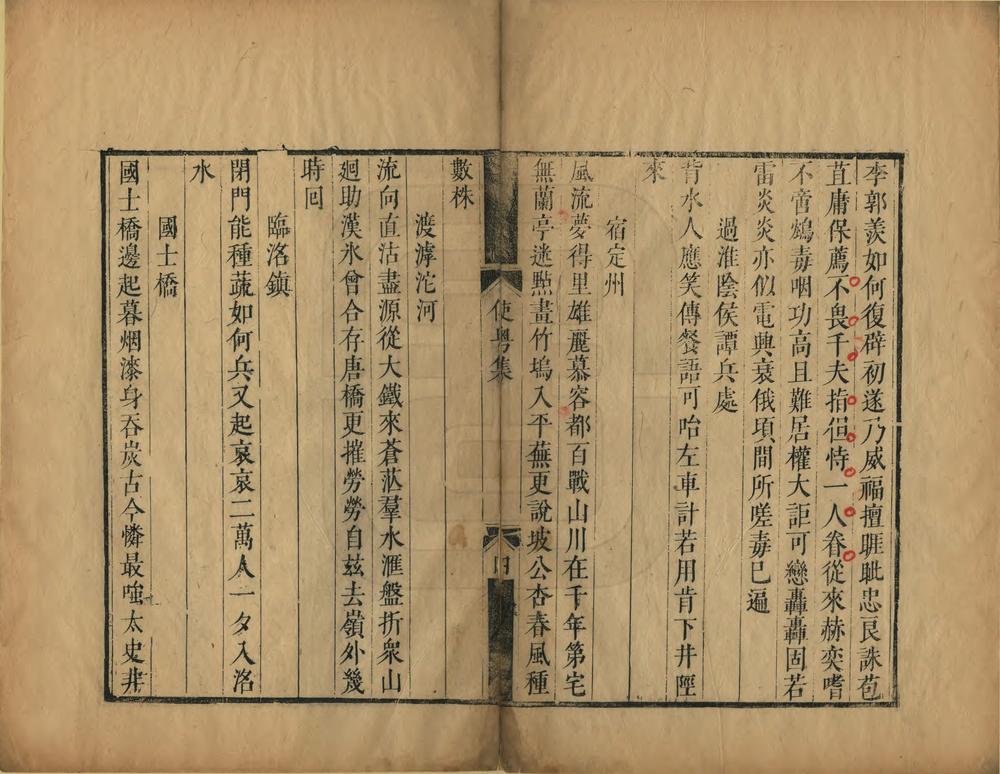 李郭羨如何復辟初遂乃威福擅睚眦忠良誅苞
苴庸保薦不畏千夫指但恃一人眷從來赫奕嗜
不啻鴆毒咽功高且難居權大詎可戀轟轟固若
雷炎炎亦似電興衰俄頃間所嗟毒已遍
過淮陰侯譚兵處
背水人應笑傳餐語可咍左車計若用肯下井陘
來
宿定州
風流夢得里雄麗慕容都百戰山川在千年第宅
無蘭亭迷點畫竹塢入平蕪更說坡公杏春風種
使粵集
四
數株
渡滹沱河
流向直沽盡源從大鐵來蒼茫羣水滙盤折衆山
廻助漢氷曾合存唐橋更摧勞勞自茲去嶺外幾
時回
臨洛鎮
閉門能種蔬如何兵又起哀哀二萬人一夕入洛
水
國士橋
國士橋邊起暮烟漆身吞炭古今憐最嗤太史井